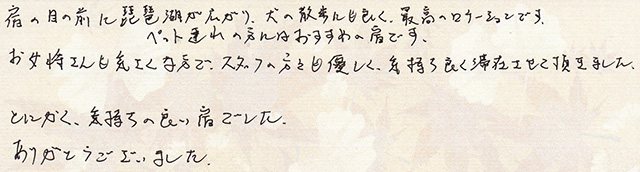 宿の目の前に琵琶湖が広がり、犬の散歩にも良く、最高のロケーションです。
ペット連れの方にはおすすめの宿です。
お女将さんも気さくな方で、スタッフの方々も優しく、気持ち良く滞在させて頂きました。
とにかく、気持ちの良い宿でした。
ありがとうございました。